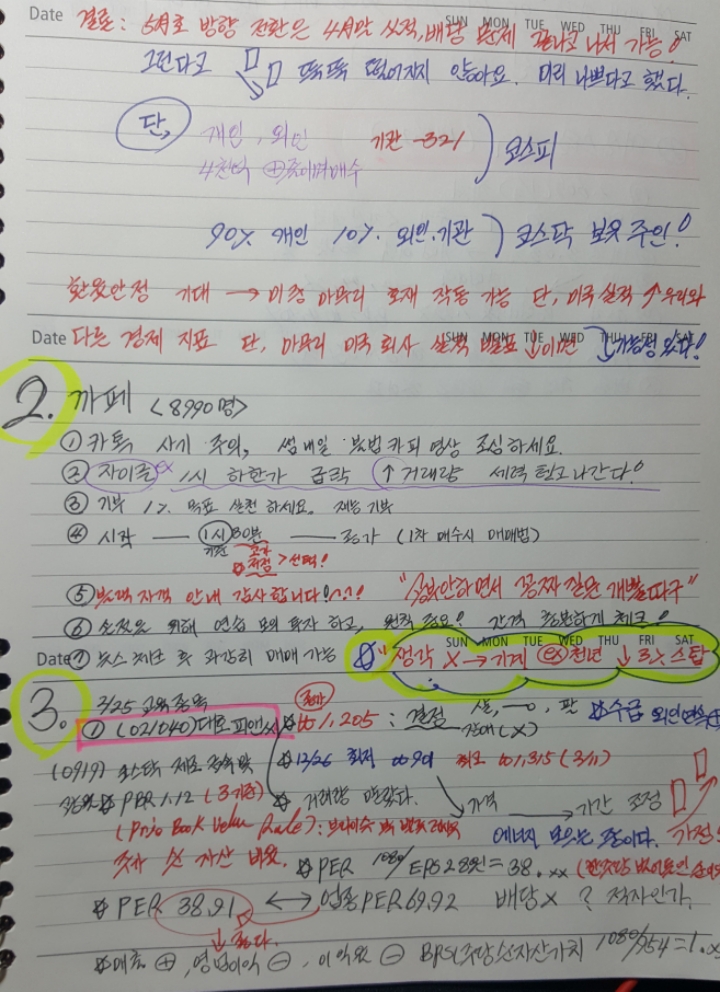 Date 결론: 5월호 방향 전환은 4月말 실적, 배당 문제 끝나고 나서 가능!
SUN MON TUE WED THU FRI SAT
그런다고 뚝뚝 떨어지지 않아요. 미리 나쁘다고 했다.
단, 개인, 외인 기관 -321 코스피
4천억 ⊕
90% 개인 10% 외인.기관 코스닥 보유 주인!
환율안정 기대 → 이중 마무리 호재 작동 가능 단, 미국 실적 ↑ 우리와
Date 다른 경제 지표 단, 아무리 미국 회사 실적 발표 ↓이면 ↓가능성 있다!
SUN MON TUE WED THU FRI SAT
2. 까페 <8990명>
① 카톡 사기 주의, 썸네일 불법 카피 영상 조심하세요.
② 자이글 ex 1시 하한가 급락 ↑ 거래량 세력 털고 나간다!
③ 기부 1% 목표 실천 하세요. 재능 기부
④ 시작 — 1시30분 — 종가 (1차 매수시 매매법)
기준 고가 저점 > 선택!
⑤ 자격 안내 감사합니다! "공부안하면서 공짜 같은 개뿔따구"
⑥ 손절은 위해 연습 모의 투자 하고, 원칙 중요! 간격 충분하게 체크!
SUN MON TUE WED THU FRI SAT
Date ⑦ 뉴스 체크 후 과감히 매매 가능 "생각 X → 기계 ex 천년 ↓ 3% 스탑
3. 3/25 교육종목
① (021040) 대호피앤씨 종가 ₩1,205 : 결정 살, ㅡㅇ, 판 수급 외인연속 ⊕
(0919) 코스닥 제조 금속 및 12/26 최저 ₩901 최고 ₩1,315 (3/11)
PBR 1.12 (3기준) 거래량 말랐다. 가격 → 기간 조정
(Price Book Value Rate) : 에너지 모으는 중이다.
주가 순 자산 비율. PER 1080/EPS 28원 = 38.xx
PER 38.91 ↔ 업종PER 69.92 배당 X ? 적자인가.
↓ 좋다.
매출 ⊕, 영업이익 ⊖, 이익율 ⊖ BPS(주당순자산가치 1080/954=1.x